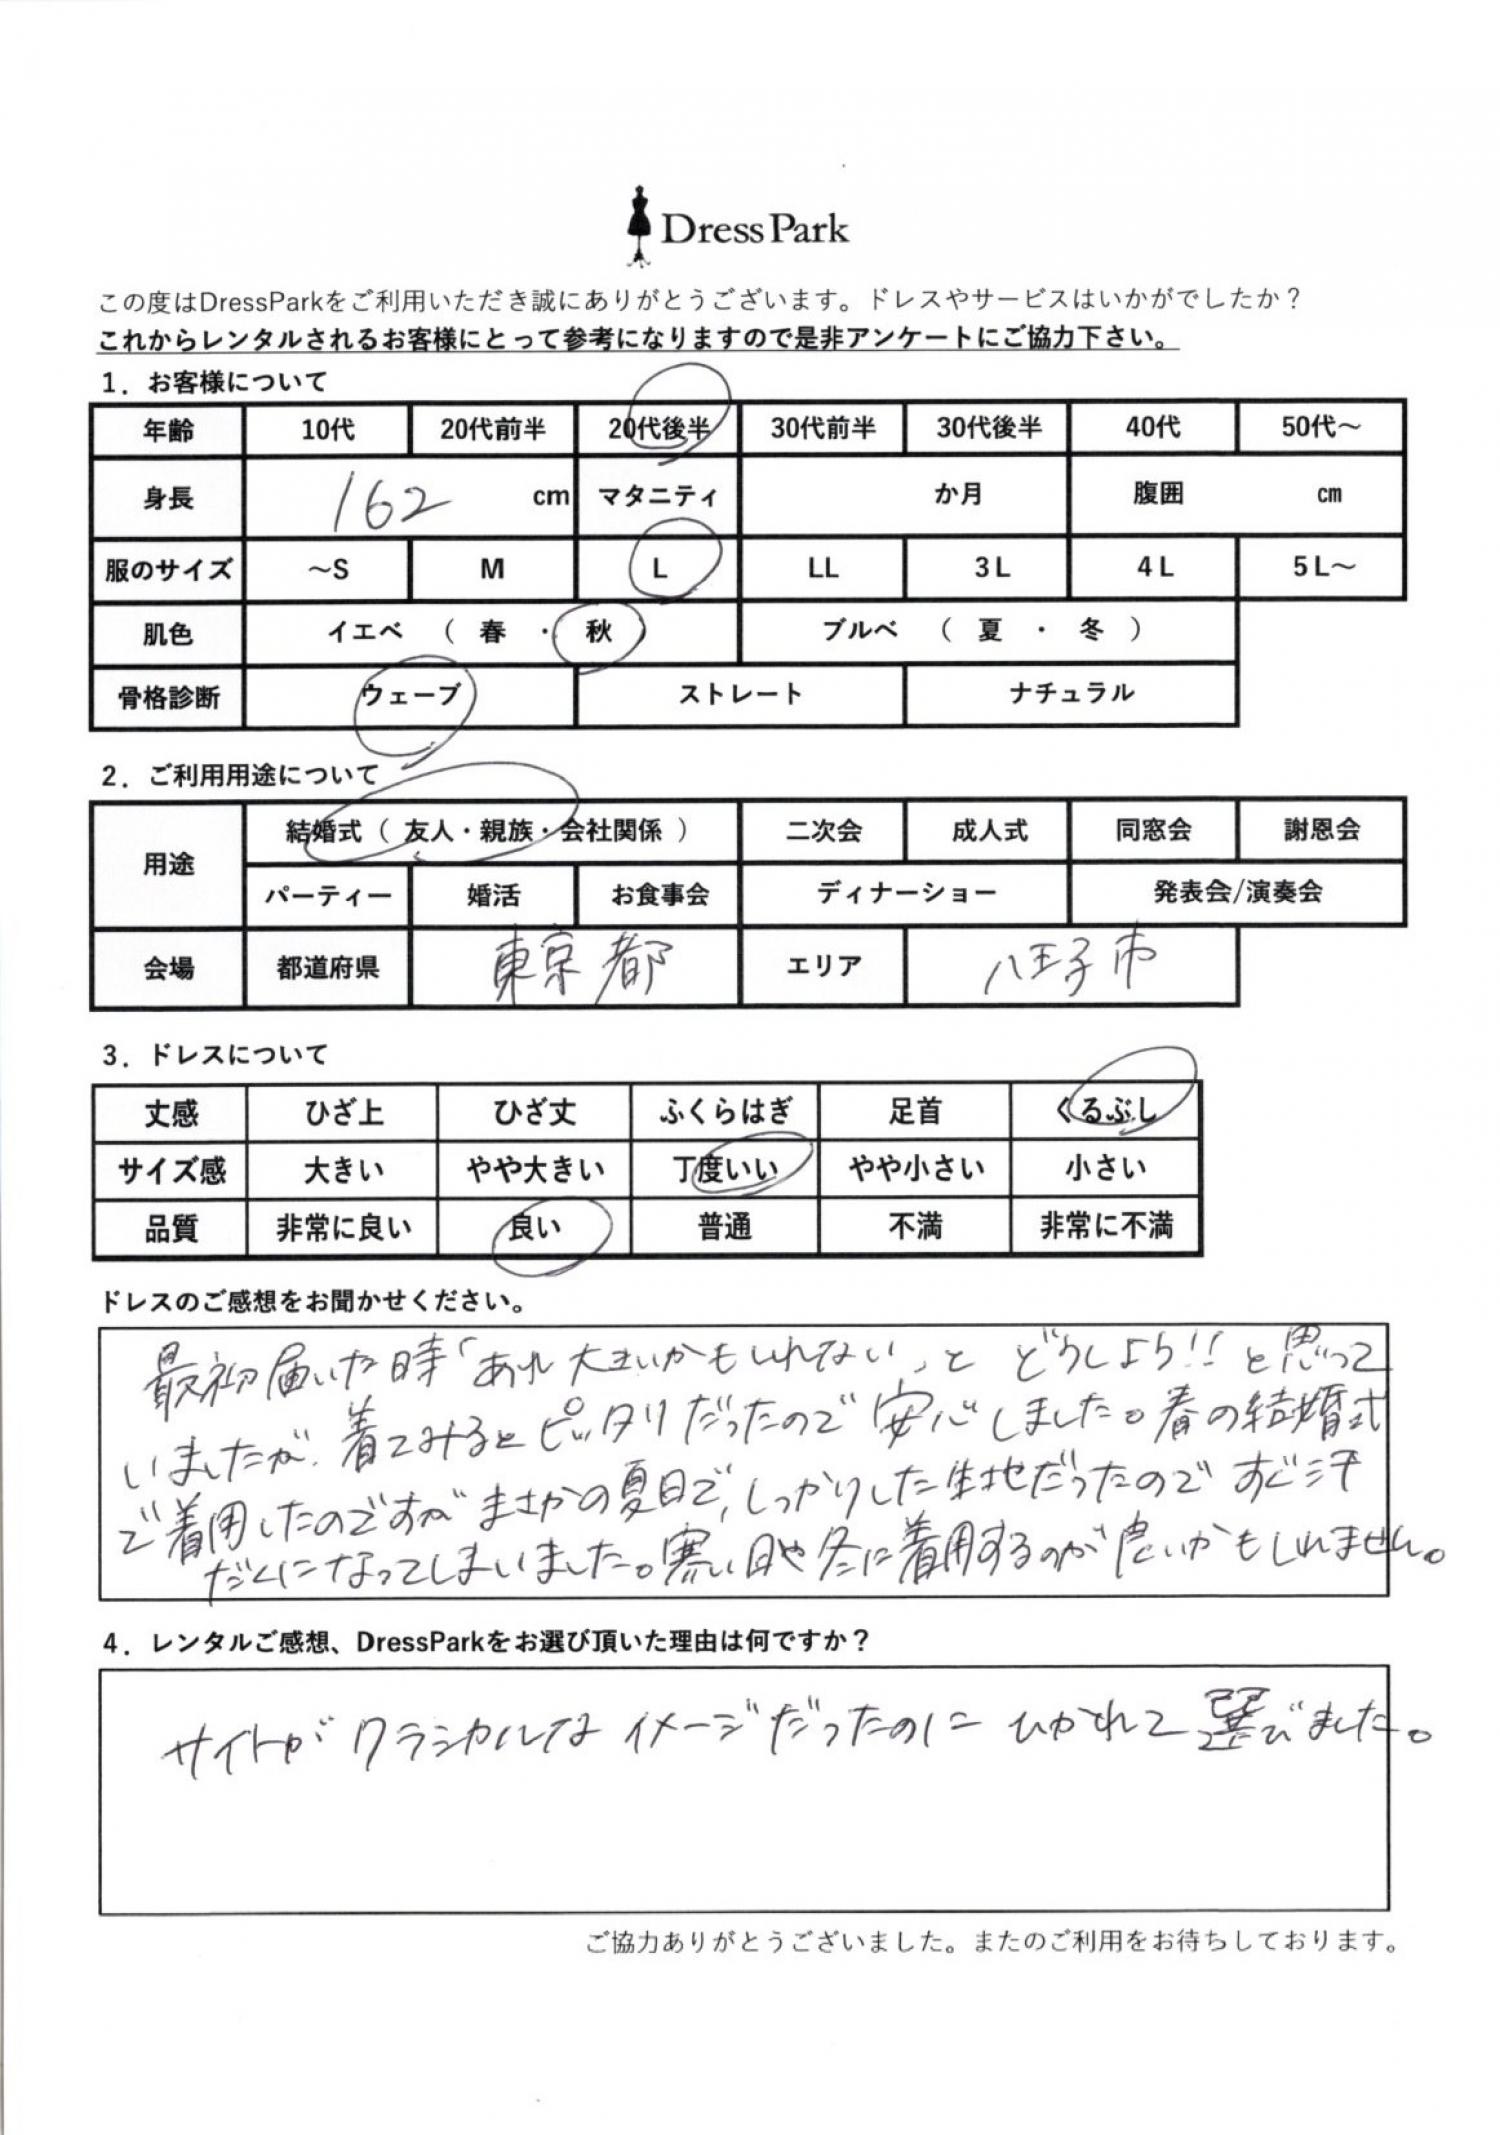 DressPark
この度はDressParkをご利用いただき誠にありがとうございます。ドレスやサービスはいかがでしたか？
これからレンタルされるお客様にとって参考になりますので是非アンケートにご協力下さい。
1．お客様について
年齢 10代 20代前半 20代後半 30代前半 30代後半 40代 50代～
身長 162 cm マタニティ か月 腹囲 cm
服のサイズ ～S M L LL 3L 4L 5L～
肌色 イエベ （ 春 ・ 秋 ） ブルベ （ 夏 ・ 冬 ）
骨格診断 ウェーブ ストレート ナチュラル
2．ご利用用途について
用途 結婚式（ 友人・親族・会社関係 ） 二次会 成人式 同窓会 謝恩会
パーティー 婚活 お食事会 ディナーショー 発表会/演奏会
会場 都道府県 東京都 エリア 八王子市
3．ドレスについて
丈感 ひざ上 ひざ丈 ふくらはぎ 足首 くるぶし
サイズ感 大きい やや大きい 丁度いい やや小さい 小さい
品質 非常に良い 良い 普通 不満 非常に不満
ドレスのご感想をお聞かせください。
最初届いた時「あれ大きいかもしれない」と どうしよう!! と思って
いましたが、着てみるとピッタリだったので安心しました。春の結婚式
で着用したのですが まさかの夏日で、しっかりした生地だったので すぐ汗
だくになってしまいました。寒い日や冬に着用するのが良いかもしれません。
4．レンタルご感想、DressParkをお選び頂いた理由は何ですか？
サイトが クラシカルな イメージだったのに ひかれて 選びました。
ご協力ありがとうございました。またのご利用をお待ちしております。